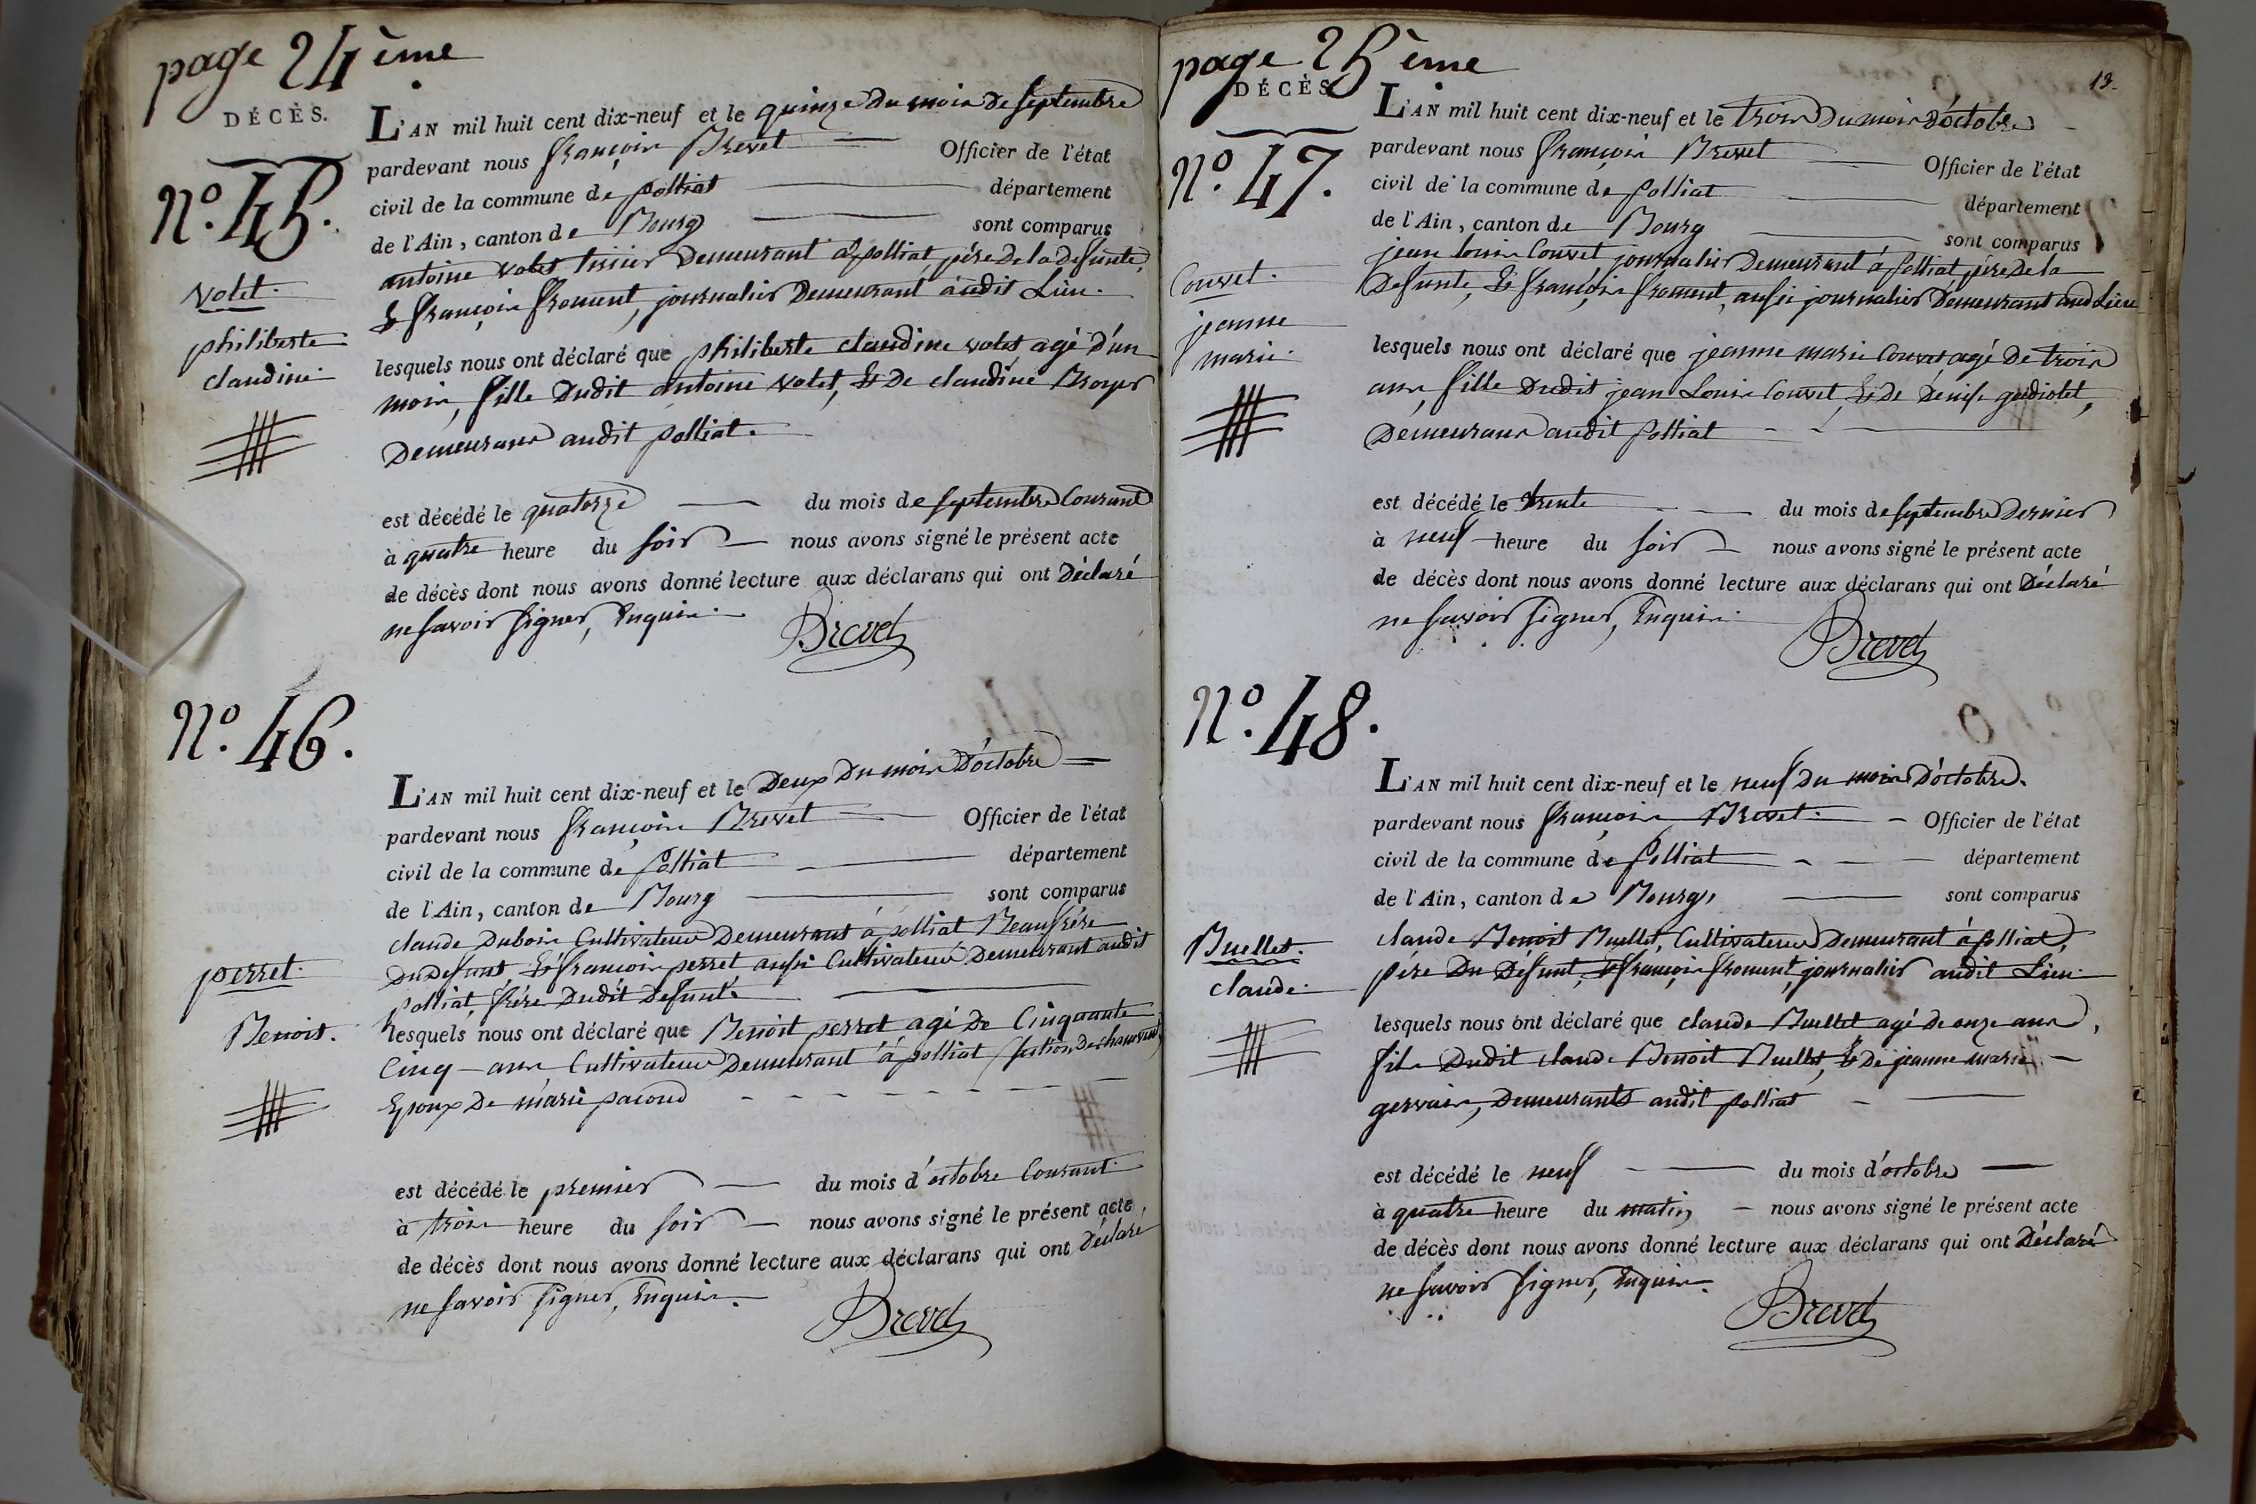 page 24 ème
DÉCÈS.
N.º 45.
Volet.
philiberte
claudine.
L'AN mil huit cent dix-neuf et le quinze du mois de septembre
pardevant nous françois Brevet Officier de l'état
civil de la commune de polliat département
de l'Ain, canton de Bourg sont comparus
antoine volet tissier demeurant à polliat père de la defunte,
& françois froment, journalier demeurant audit Lieu.
lesquels nous ont déclaré que philiberte claudine volet agé d'un
mois, fille dudit antoine volet, & de claudine Broyer
demeurans audit polliat.
est décédé le quatorze du mois de septembre Courant
à quatre heure du soir nous avons signé le présent acte
de décès dont nous avons donné lecture aux déclarans qui ont Déclaré
ne savoir signer, Enquis.
Brevet
N.º 46.
perret.
Benoit.
L'AN mil huit cent dix-neuf et le Deux du mois d'octobre
pardevant nous françois Brevet Officier de l'état
civil de la commune de polliat département
de l'Ain, canton de Bourg sont comparus
claude Dubois Cultivateur demeurant à polliat Beaufrére
du defunt, & françois perret aussi Cultivateur demeurant audit
polliat, frére dudit defunt.
lesquels nous ont déclaré que Benoit perret agé de Cinquante
Cinq ans Cultivateur demeurant à polliat (section de
Epoux de marie pacoud
est décédé le premier du mois d'octobre Courant
à trois heure du soir nous avons signé le présent acte
de décès dont nous avons donné lecture aux déclarans qui ont déclaré
ne savoir signer, Enquis.
Brevet
page 25 ème
DÉCÈS.
13.
N.º 47.
Couvet.
jeanne
marie.
L'AN mil huit cent dix-neuf et le trois du mois d'octobre
pardevant nous françois Brevet Officier de l'état
civil de la commune de polliat département
de l'Ain, canton de Bourg sont comparus
jean louis Couvet journalier demeurant à polliat père de la
defunte, & françois froment, aussi journalier demeurant aud Lieu
lesquels nous ont déclaré que jeanne marie Couvet agé de trois
ans, fille dudit jean Louis Couvet, & de denise gudiolet,
demeurans audit polliat
est décédé le trente du mois de septembre dernier
à neuf heure du soir nous avons signé le présent acte
de décès dont nous avons donné lecture aux déclarans qui ont Déclaré
ne savoir signer, Enquis.
Brevet
N.º 48.
Buellet.
claude.
L'AN mil huit cent dix-neuf et le neuf du mois d'octobre.
pardevant nous françois Brevet Officier de l'état
civil de la commune de polliat département
de l'Ain, canton de Bourg, sont comparus
claude Benoit Buellet, Cultivateur demeurant à polliat,
pére du défunt, & françois froment, journalier audit Lieu
lesquels nous ont déclaré que claude Buellet agé de onze ans,
fils dudit claude Benoit Buellet, & de jeanne marie
gervais, demeurants audit polliat
est décédé le neuf du mois d'octobre
à quatre heure du matin nous avons signé le présent acte
de décès dont nous avons donné lecture aux déclarans qui ont Déclaré
ne savoir signer, Enquis.
Brevet